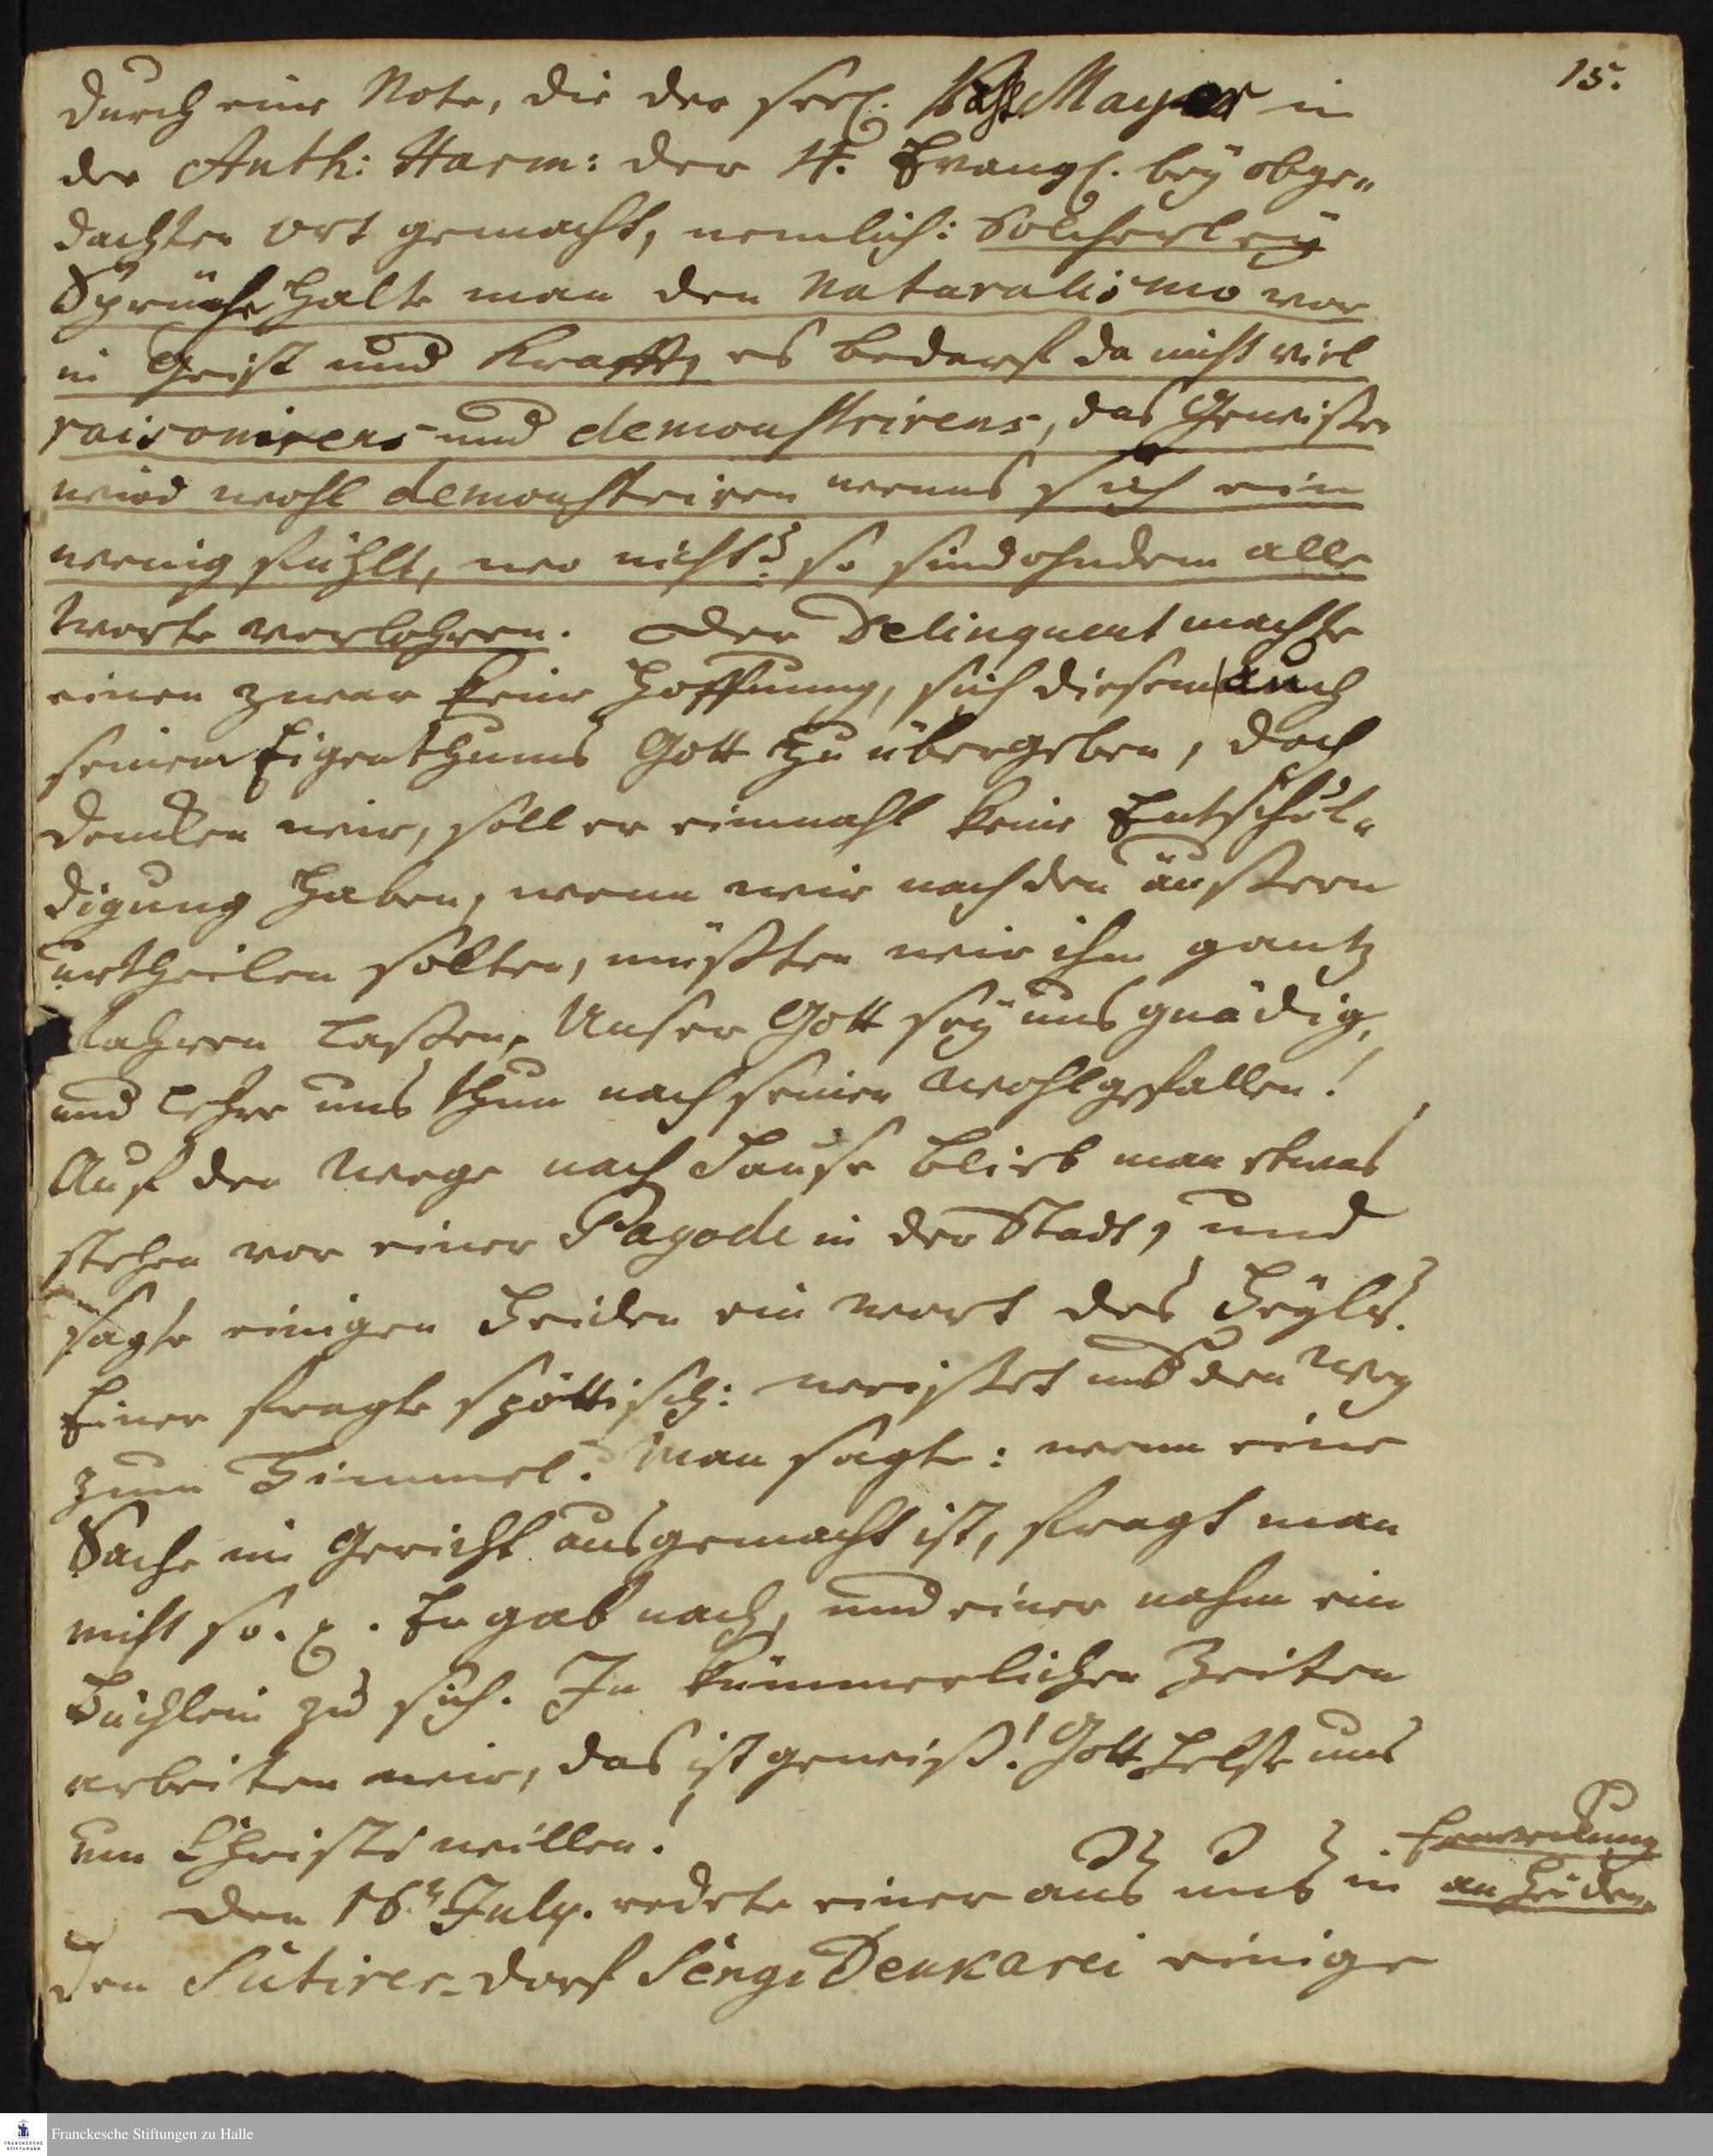 15.
durch eine Note, die der seel. Past. Mayer in
der Auth: Harm: der 4. Evangl. bey obge„
dachten Ort gemacht, nemlich: Solcherley
Sprüche halte man den Naturalismo vor
in Geist und Krafft, es bedarf da nicht viel
raisonirens und demonstrirens, das Gewißen
wird wohl demonstriren wenns sich ein
wenig fühlt, wo nicht? so sind ohndem alle
Worte verlohren. Der Delinquent machte
einen zwar keine Hoffnung, sich diesem auch
seinem Eigenthums Gott zu übergeben, doch
dencken wir, soll er einmahl keine Entschul„
digung haben, wenn wir nach den äußern
urtheilen solten, müßten wir ihn gantz
fahren laßen. Unser Gott sey uns gnädig,
und lehre uns thun nach seinen Wohlgefallen!
Auf den Wege nach Hause blieb man etwas
stehen vor einer Pagode in der Stadt, und
sagte einigen Heiden ein Wort des Heyls.
Einer fragte spöttisch: weißet uns den Weg
zum Himmel. Man sagte: wenn eine
Sache im Gericht ausgemacht ist, fragt man
nicht so. Er gab nach, und einer nahm ein
Büchlein zu sich. In kümmerlichen Zeiten
arbeiten wir, das ist gewiß! Gott helfe uns
um Christi willen!
Den 16t July. redete einer aus uns in
Erweckung
an Heiden.
den Sutirer-dorf Sengi Denkarei einige
Franckesche Stiftungen zu Halle
FRANCKESCHE
STIFTUNGEN